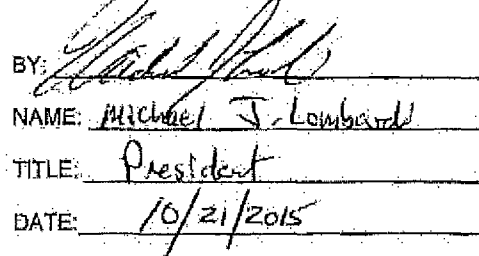 BY:
NAME: Michael J. Lombardi
TITLE: President
DATE: 10/21/2015